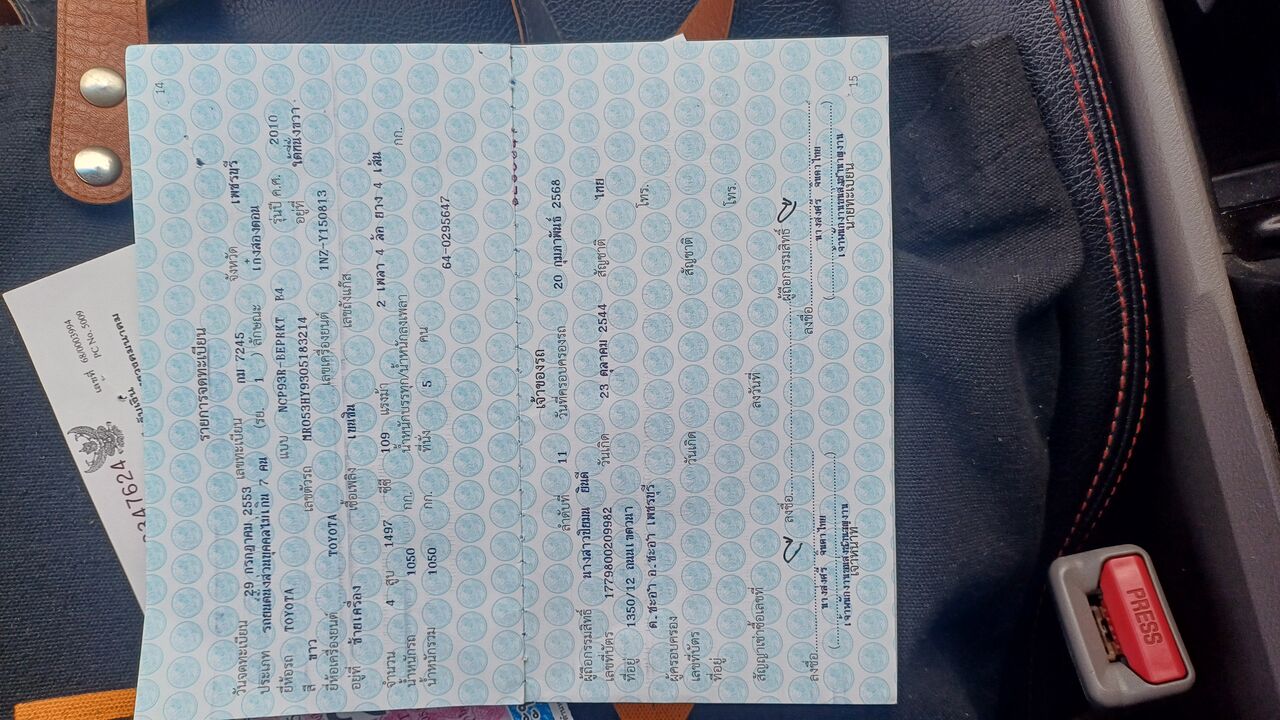 14
รายการจดทะเบียน
วันจดทะเบียน 29 กรกฎาคม 2553 เลขทะเบียน กม 7245 จังหวัด เพชรบุรี
ประเภท รถยนต์นั่งส่วนบุคคลไม่เกิน 7 คน (รย. 1 ) ลักษณะ เก๋งสองตอน
ยี่ห้อรถ TOYOTA แบบ NCP93R-BEPRKT E4 รุ่นปี ค.ศ. 2010
สี ขาว เลขตัวรถ MR053HY9305183214 อยู่ที่ ใต้ที่นั่งขวา
ยี่ห้อเครื่องยนต์ TOYOTA เลขเครื่องยนต์ 1NZ-Y150813
อยู่ที่ ซ้ายเครื่อง เชื้อเพลิง เบนซิน เลขถังแก๊ส
จำนวน 4 สูบ 1497 ซีซี 109 แรงม้า 2 เพลา 4 ล้อ ยาง 4 เส้น
น้ำหนักรถ 1050 กก. น้ำหนักบรรทุก/น้ำหนักลงเพลา กก.
น้ำหนักรวม 1050 กก. ที่นั่ง 5 คน
64-0295647
เจ้าของรถ
ลำดับที่ 11 วันที่ครอบครองรถ 20 กุมภาพันธ์ 2568
ผู้ถือกรรมสิทธิ์ นางสาวปิยมน ยินดี
เลขที่บัตร 1779800209982 วันเกิด 23 ตุลาคม 2544 สัญชาติ ไทย
ที่อยู่ 1350/12 ถนน โทร.
ต.ชะอำ อ.ชะอำ เพชรบุรี
ผู้ครอบครอง
เลขที่บัตร วันเกิด สัญชาติ
ที่อยู่ โทร.
สัญญาเช่าซื้อเลขที่ ลงวันที่
ลงชื่อ ผู้ถือกรรมสิทธิ์
ลงชื่อ ลงชื่อ
เจ้าหน้าที่ นายทะเบียน
15
เลขที่ 680003994
PC No. 5009
PRESS